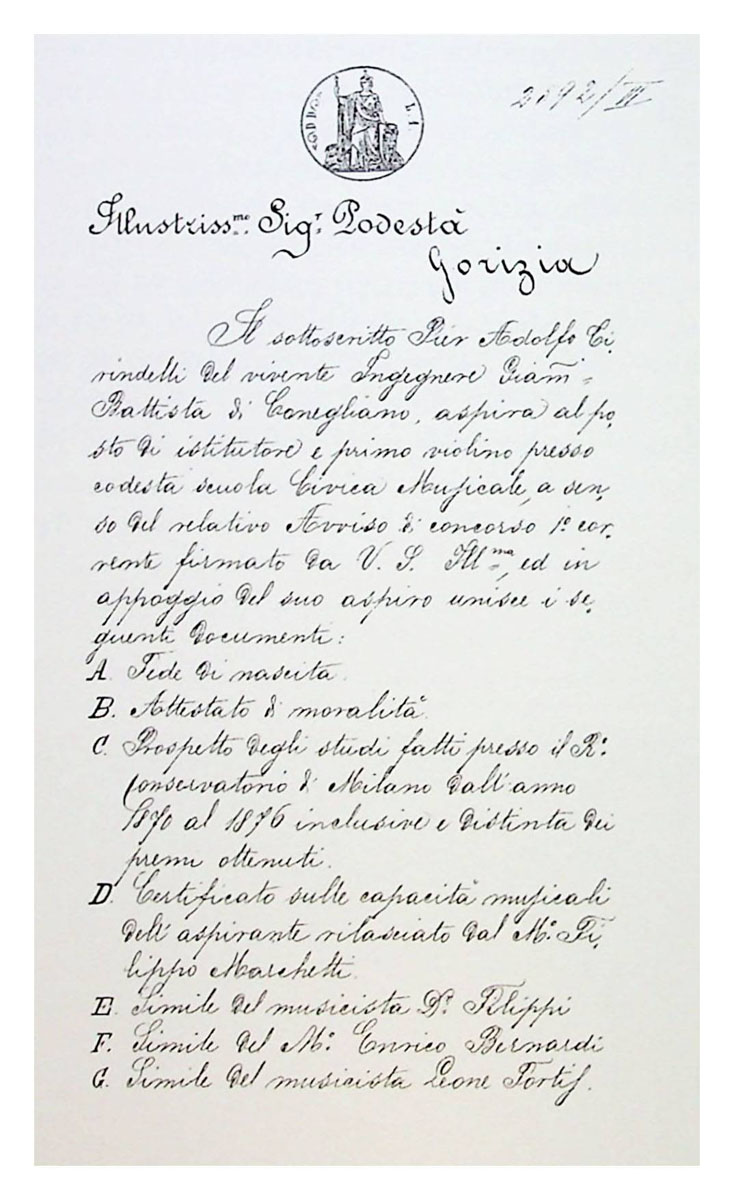 2092/III
Illustriss.mo Sig.r Podestà
Gorizia
Il sottoscritto Pier Adolfo Ti,
rindelli del vivente Ingegnere Giam=
Battista di Conegliano, aspira al po,
sto di istitutore e primo violino presso
codesta scuola Civica Musicale, a sen,
so del relativo Avviso di concorso 1º cor,
rente firmato da V. S. Ill.ma, ed in
appoggio del suo aspiro unisce i se,
guenti documenti:
A. Fede di nascita.
B. Attestato di moralità.
C. Prospetto degli studi fatti presso il R.º
Conservatorio di Milano dall'anno
1870 al 1876 inclusive e distinta dei
premi ottenuti.
D. Certificato sulle capacità musicali
dell'aspirante rilasciato dal M.º Fi,
lippo Marchetti.
E. Simile del musicista D.r Filippi
F. Simile del M.º Enrico Bernardi
G. Simile del musicista Leone Fortis.